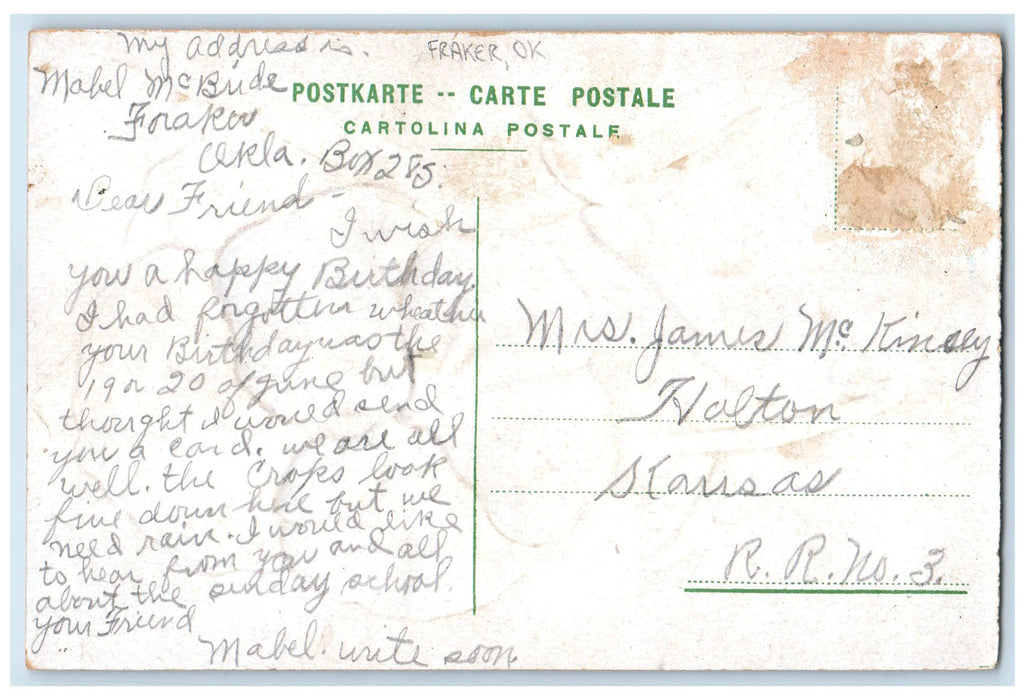 My address is.
Mabel McBride
Foraker
Okla. Box 285.
FRAKER, OK
POSTKARTE -- CARTE POSTALE
CARTOLINA POSTALE
Dear Friend -
I wish
you a happy Birthday.
I had forgotten wheather
your Birthday was the
19 or 20 of June but
thought I would send
you a card. we are all
well. the Crops look
fine down here but we
need rain. I would like
to hear from you and all
about the sunday school.
your Friend
Mabel. write soon.
Mrs. James McKinsey
Holton
Kansas
R. R. No. 3.